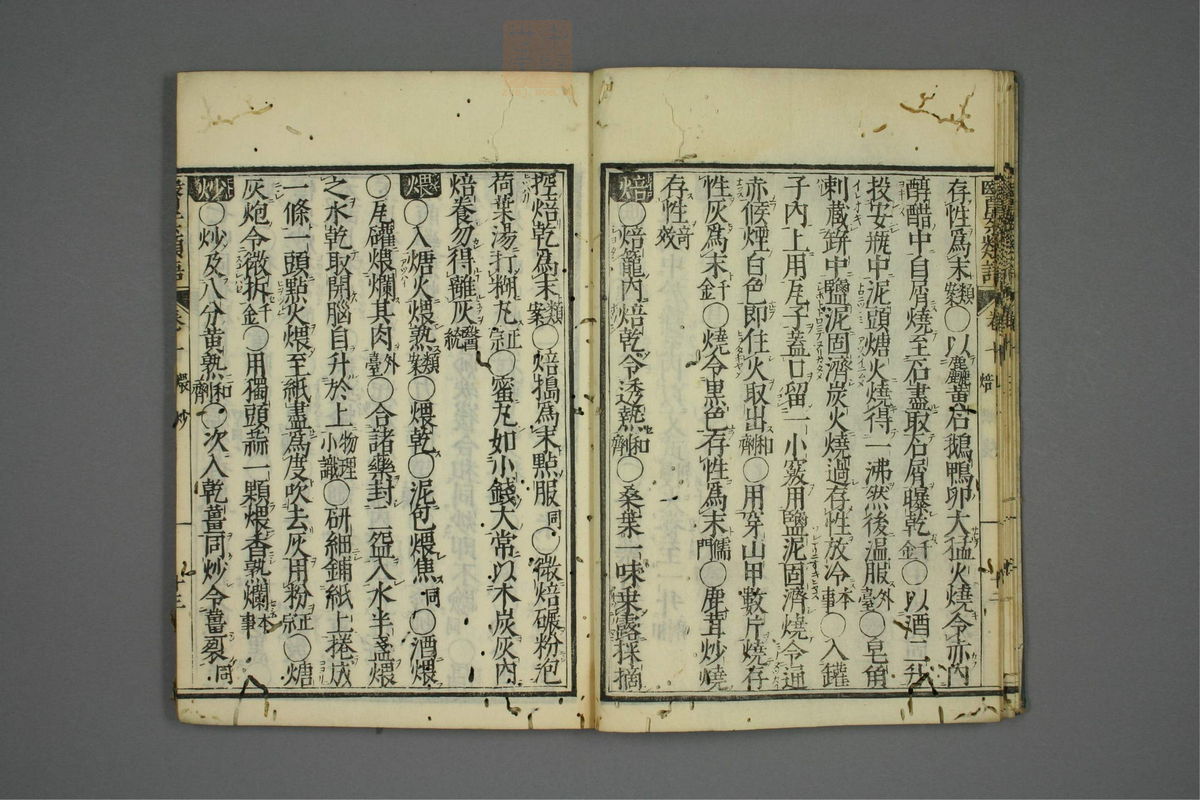 存性爲末類案○以麤黃石鵝鴨卵大猛火燒令赤內
醇醋中自屑燒至石盡取石屑曝乾千金○以酒二升
投女甁中泥頭煻火燒得一沸然後溫服外臺○皂角
刺蔵缾中鹽泥固濟炭火燒過存性放冷本事○入罐
子內上用瓦子蓋口留一小竅用鹽泥固濟燒令通
赤候煙白色卽住火取出和劑○用穿山甲數片燒存
性灰爲末千金○燒令黑色存性爲末儒門○鹿茸炒燒
存性竒效
焙○焙籠內焙乾令透熱和劑○桑葉一味乗露採摘
控焙乾爲末類案○焙搗爲末點服同○微焙碾粉泡
荷葉湯打糊丸正宗○蜜丸如小錢大常以木炭灰內
焙養勿得離灰醫統
煨○入煻火煨熟類案○煨乾○泥包煨焦同○酒煨
○瓦礶煨爛其肉外臺○合諸藥封二盌入水半盞煨
之水乾取開腦自升於上物理小識○研細鋪紙上捲成
一條一頭點火煨至紙盡爲度吹去灰用粉正宗○煻
灰炮令微拆千金○用獨頭蒜一顆煨香熟爛本事
炒○炒及八分黃熟和劑○次入乾薑同炒令薑裂同